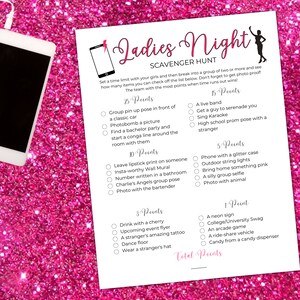 Ladies Night
SCAVENGER HUNT
Set a time limit with your girls and then break into a group of two or more and see
how many you can check off the list below. Don't forget to get photo proof!
The team with the most points when time runs out wins!
Points
Group pin up pose in front of
a classic car
Photobomb a picture
Find a bachelor party and
start a conga line around the
room with them
15 Points
A live band
Get a guy to serenade you
Sing Karaoke
High school prom pose with a
stranger
10 Points
Leave lipstick print on someone
Insta-worthy Wall Mural
Number written in a bathroom
Charlie's Angel group pose
Photo with the bartender
5 Points
Phone with a glitter case
Outdoor string lights
Bring home something pink
A silly group selfie
Photo with animal
3 Points
Drink with a cherry
Upcoming event flyer
A stranger's amazing tattoo
Dance floor
Wear a stranger's hat
1 Points
A neon sign
College/University Swag
An arcade game
A ride-share vehicle
Candy from a candy dispenser
Total Points